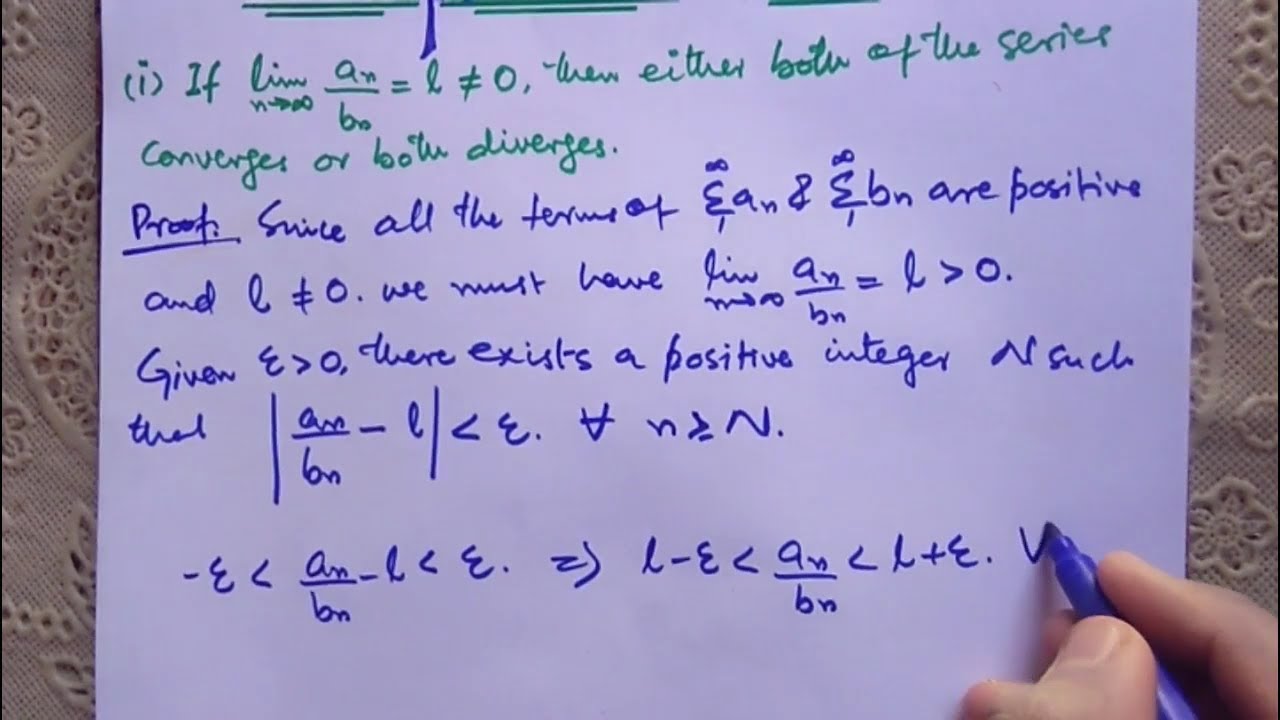 (i) If lim n→∞ an/bn = l ≠ 0, then either both of the series
converges or both diverges.
Proof: Since all the terms of ∞ Σ 1 an & ∞ Σ 1 bn are positive
and l ≠ 0. we must have lim n→∞ an/bn = l > 0.
Given ε > 0, there exists a positive integer N such
that |an/bn − l| < ε. ∀ n ≥ N.
-ε < an/bn − l < ε. ⇒ l − ε < an/bn < l + ε.